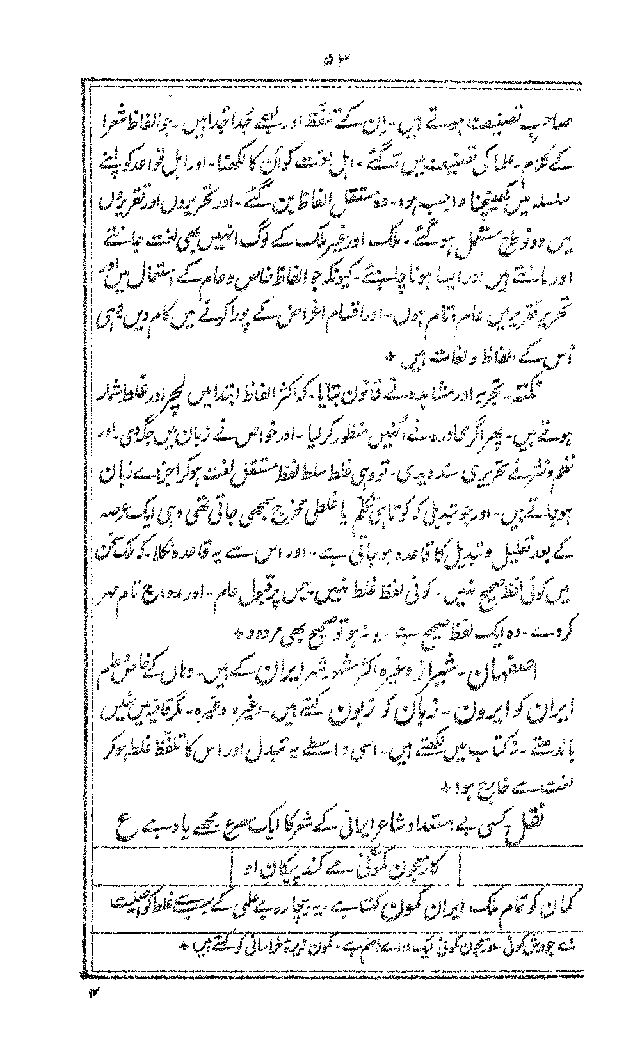 ۵۳
صاحبِ تصنیف ہوتے ہیں۔ اِن کے تلفّظ اور لہجے جُدا جُدا ہیں۔ جو الفاظ شعرا
کے کلام۔ علما کی تصنیف میں آ گئے۔ اہل لغت کو اُن کا لکھنا۔ اور اہلِ قواعد کو اپنے
سلسلہ میں کھینچنا واجب ہوا۔ وہ مستقل الفاظ بن گئے۔ اور تحریروں اور تقریروں
میں دونو طرح مستعمل ہو گئے۔ ملک اور غیر ملک کے لوگ انہیں بھی لغت جانتے
اور مانتے ہیں اور ایسا ہونا چاہیئے۔ کیونکہ جو الفاظ خاص و عام کے استعمال میں
تحریر تقریر میں عام تام ہوں۔ اور اقسام اغراض کے پورا کرنے میں کام دیں وہی
اُس کے الفاظ و لغات ہیں +
نکتہ۔ تجربہ اور مشاہدہ نے قانون بتایا۔ کہ اکثر الفاظ ابتدا میں لچر اور غلط شمار
ہوتے ہیں۔ پھر اگر محاورہ نے انہیں منظور کر لیا۔ اور خواص نے زبان میں جگہ دی۔ اور
نظم و نثر نے تحریری سند دیدی۔ تو وہی غلط سلط لفظ مستقل لغت ہو کر اجزاے زبان
ہو جاتے ہیں۔ اور جو تبدیلی کہ کوتاہی تکلّم یا غلطی مخرج سمجھی جاتی تھی وہی ایک عرصہ
کے بعد تعلیل و تبدیل کا قاعدہ ہو جاتی ہے۔ اور اس سے یہ قاعدہ نکلا۔ کہ ملک سخن
میں کوئی لفظ صحیح نہیں۔ کوئی لفظ غلط نہیں۔ جس پر قبول عام۔ اور رواج تام مہر
کر دے۔ وہ ایک لفظ صحیح ہے۔ یہ نہ ہو تو صحیح بھی مردود +
اصفہان۔ شیراز وغیرہ اکثر مشہور شہر ایران کے ہیں۔ وہاں کے خاص و عام
ایران کو ایرون۔ زبان کو زبون کہتے ہیں۔ وغیرہ وغیرہ۔ مگر قافیہ میں نہیں
باندھتے۔ نہ کتاب میں لکھتے ہیں۔ اسی واسطے یہ تبدل اور اس کا تلفّظ غلط ہو کر
لغت سے خارج ہوا +
نقل۔ کسی بے استعداد شاعر ایرانی کے شعر کا ایک مصرع مجھے یاد ہے ع
کار جون کموُنی مے کند پیکان او
کمان کو تمام ملک ایران کمون کہتا ہے۔ یہ بیچارہ بے علمی کے سبب سے غلط کو
لہ جوارش کمونی۔ معجون کمونی ایک دوا ہے ہاضم ہے۔ کمون زیرۂ خراسانی کو کہتے ہیں +